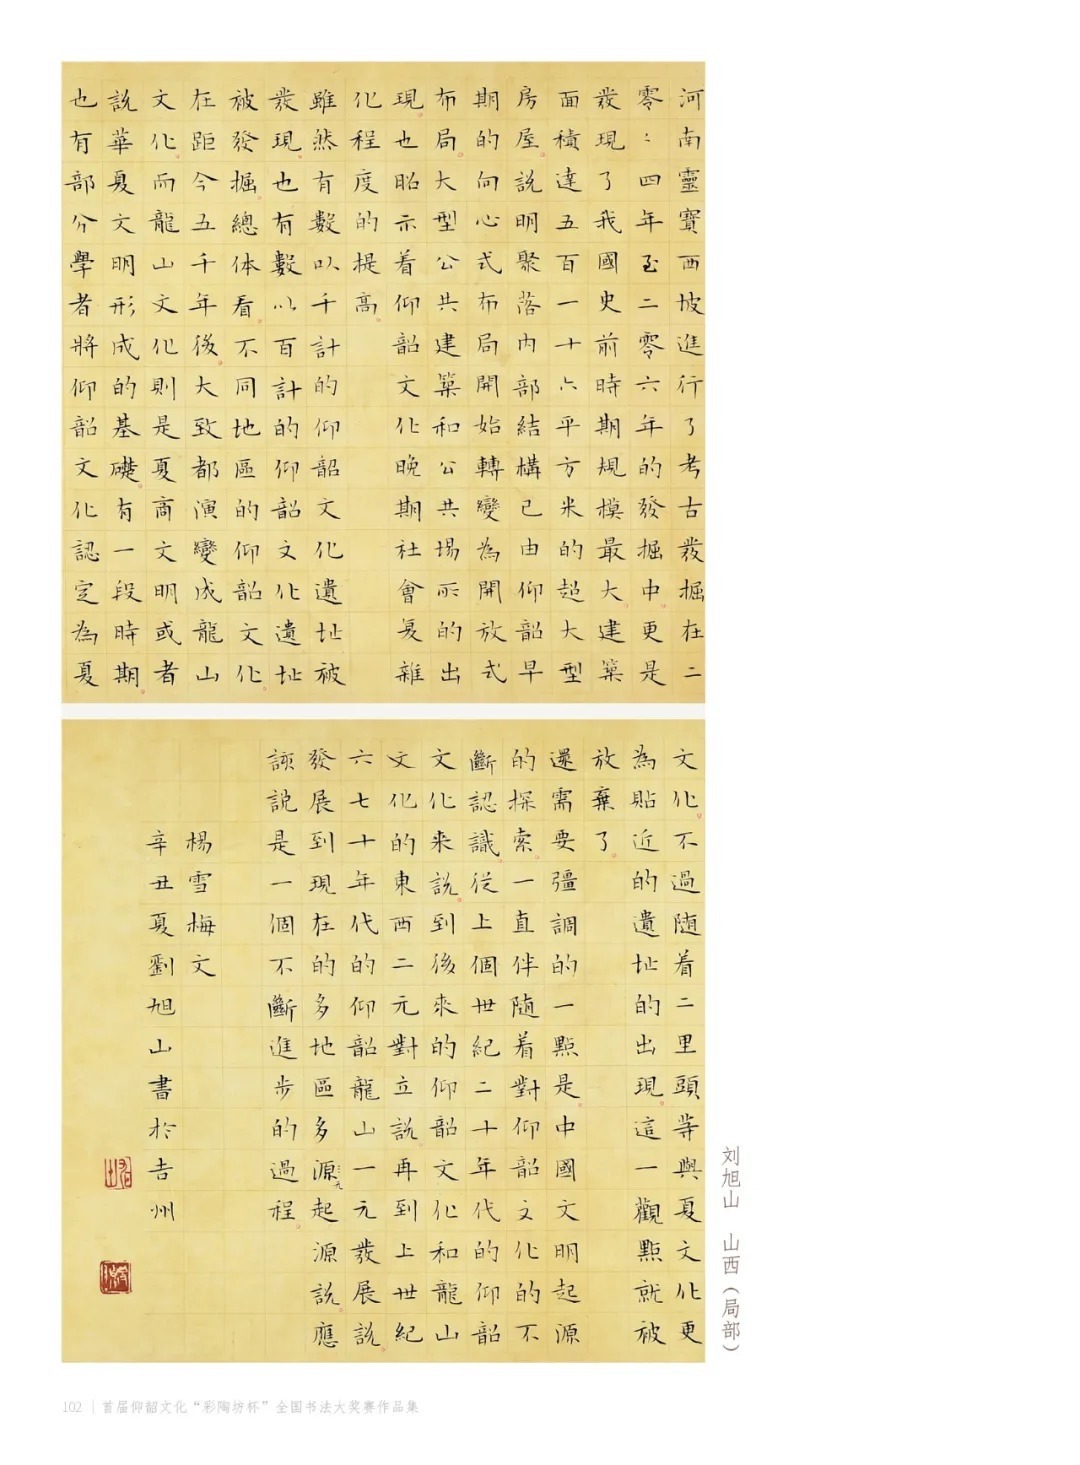 河南靈寶西坡進行了考古發掘在二
零：四年至二零六年的發掘中更是
發現了我國史前時期規模最大建築
面積達五百一十六平方米的超大型
房屋說明聚落内部結構已由仰韶早
期的向心式布局開始轉變為開放式
布局大型公共建築和公共場所的出
現也昭示着仰韶文化晚期社會复雜
化程度的提高
雖然有數以千計的仰韶文化遺址被
發現也有數以百計的仰韶文化遺址
被發掘總体看不同地區的仰韶文化
在距今五千年後大致都演變成龍山
文化而龍山文化則是夏商文明或者
說華夏文明形成的基礎有一段時期
也有部分學者將仰韶文化認定為夏
文化不過随着二里頭等與夏文化更
為貼近的遺址的出現這一觀點就被
放棄了
還需要彊調的一點是中國文明起源
的探索一直伴随着對仰韶文化的不
斷認識從上個世紀二十年代的仰韶
文化来說到後來的仰韶文化和龍山
文化的東西二元對立說再到上世紀
六七十年代的仰韶龍山一元發展說
發展到現在的多地區多源起源說應
該說是一個不斷進步的過程
楊雪梅文
辛丑夏劉旭山書於吉州
刘旭山 山西（局部）
102 | 首届仰韶文化“彩陶坊杯”全国书法大奖赛作品集